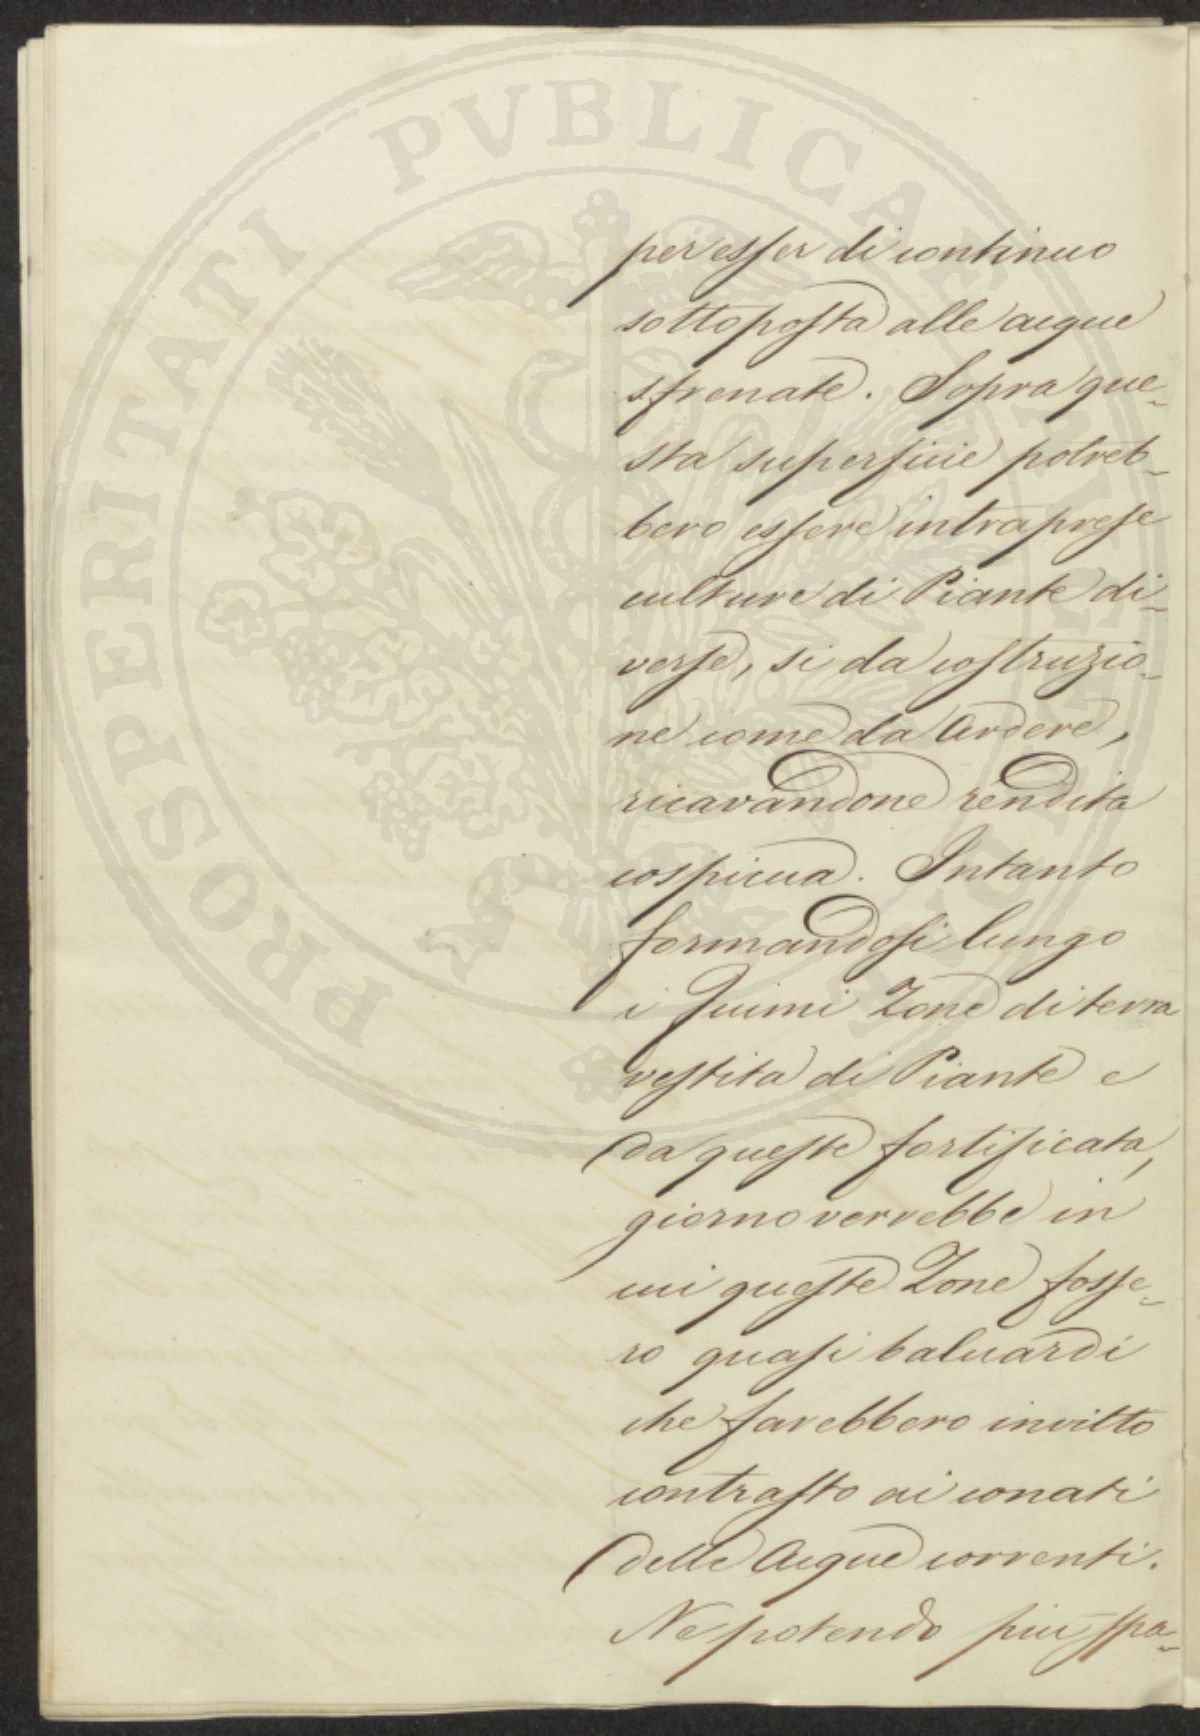 PROSPERITATI PVBLICAE
per esser di continuo
sottoposta alle acque
sfrenate. Sopra que-
sta superficie potreb-
bero essere intraprese
culture di Piante di-
verse, si da costruzio-
ne come da Ardere,
ricavandone rendita
cospicua. Intanto
formandosi lungo
i Fiumi Zone di terra
vestita di Piante e
da queste fortificata,
giorno verrebbe in
cui queste Zone fosse-
ro quasi baluardi
che farebbero invitto
contrasto ai conati
delle Acque correnti.
Ne potendo più spa-